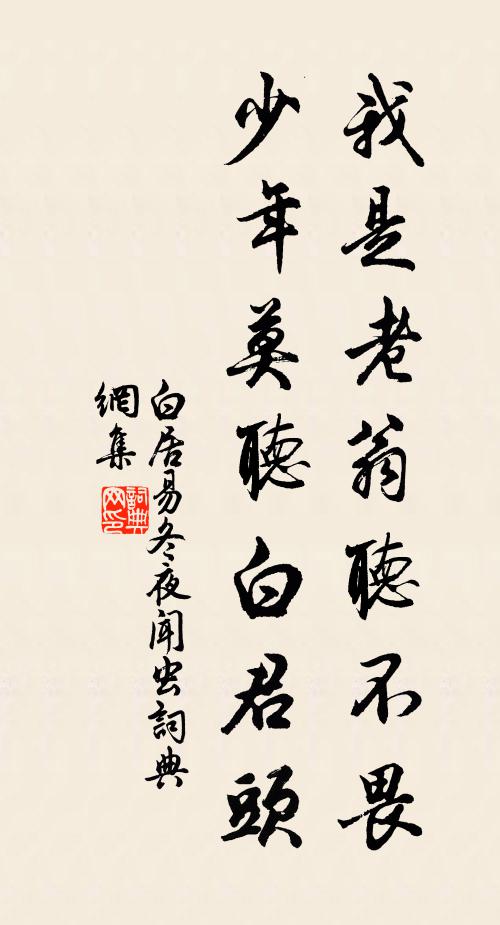 我是老翁聽不畏
少年莫聽白君頭
白居易冬夜聞虫詞典
網集
詞典
网印